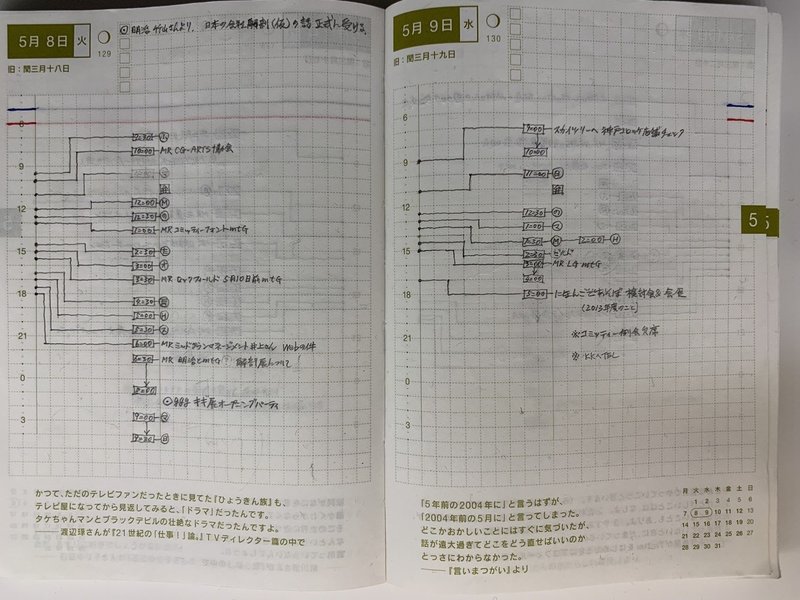 5月 8日 火
129
旧：閏三月十八日
明治 竹山さんより、日本の会社解剖(仮)の話 正式に受ける。
6
9
12
15
18
21
0
3
7:30
10:00 MR CG-ARTS協会
12:00 M
12:30
1:00 MR コミッティーフォントmtG
2:30
3:00
3:30 MR 5月10日前mtG
4:30
5:00 H
5:30
6:00 MR ミッドタウンマネージメント 井上さん Webの件
6:30 MR 明治とmtG 解剖展について
8:00
ggg キギ展オープニングパーティ
9:00
9:30
かつて、ただのテレビファンだったときに見てた『ひょうきん族』も、
テレビ屋になってから見返してみると、「ドラマ」だったんです。
タケちゃんマンとブラックデビルの壮絶なドラマだったんですよ。
——渡辺琢さんが『21世紀の「仕事！」論。』TVディレクター篇の中で
5月 9日 水
130
旧：閏三月十九日
6
9
12
15
18
21
0
3
9:00 スカイツリーへ 神戸コロッケ店舗チェック
10:00
11:00
12:30
1:00
1:30 M 2:00 H
2:30 ビルド
3:00 MR LG mtG
4:00
5:00 にほんごであそぼ 検討会&会食
(2013年度のこと)
※コミッティー例会欠席
※KKへTEL
5
5
「5年前の2004年に」と言うはずが、
「2004年前の5月に」と言ってしまった。
どこかおかしいことにはすぐに気づいたが、
話が遠大過ぎてどこをどう直せばいいのか
とっさにわからなかった。
——『言いまつがい』より
月 火 水 木 金 土 日
1 2 3 4 5 6
7 8 9 10 11 12 13
14 15 16 17 18 19 20
21 22 23 24 25 26 27
28 29 30 31